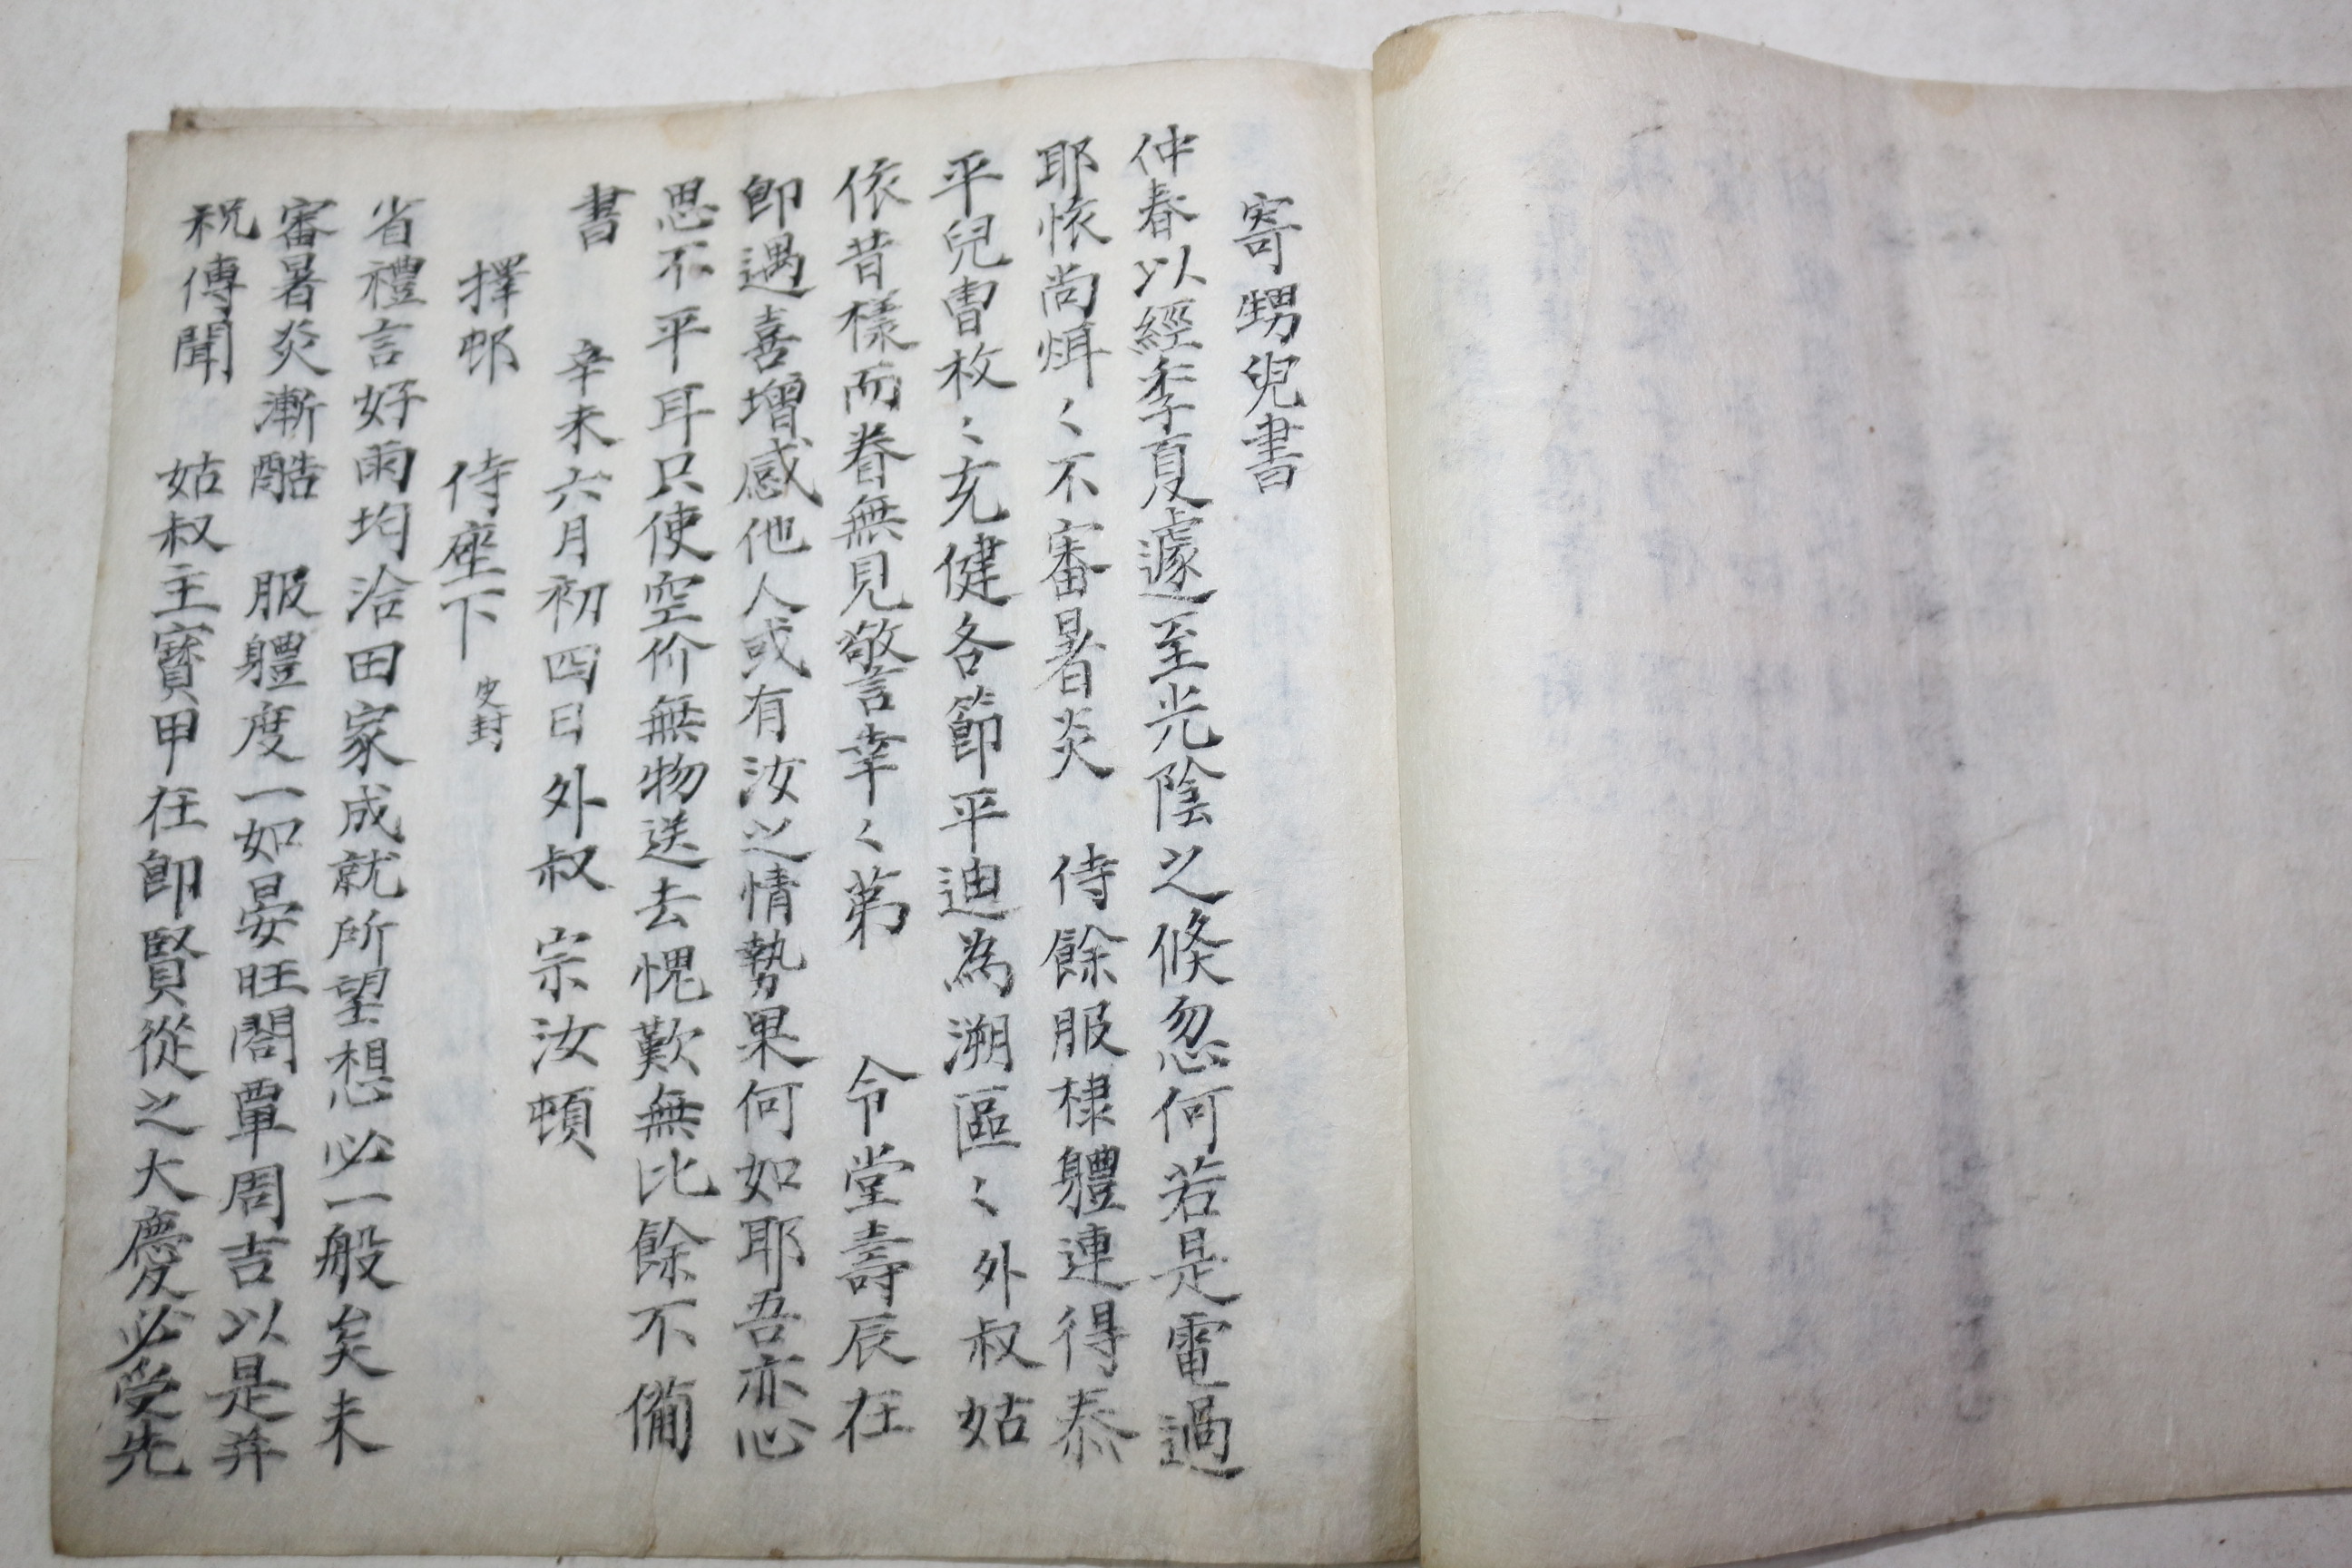 寄甥兒書
仲春以經季夏遽至光陰之倏忽何若是電過
耶恢尚焆〻不審暑炎 侍餘服棣軆連得泰
平兒曺枚〻充健各節平迪為溯區〻外叔姑
依昔樣而眷無見警幸〻第 令堂壽辰在
卽遇喜增感他人或有汝之情勢果何如耶吾亦心
思不平耳只使空价無物送去愧歎無比餘不備
書 辛未六月初四日外叔宗汝頓
擇邨 侍座下 史封
省禮言好雨均洽田家成就所望想必一般矣未
審暑炎漸酷 服軆度一如晏旺閤覃周吉以是并
祝傳聞 姑叔主寶甲在卽賢從之大慶必受先